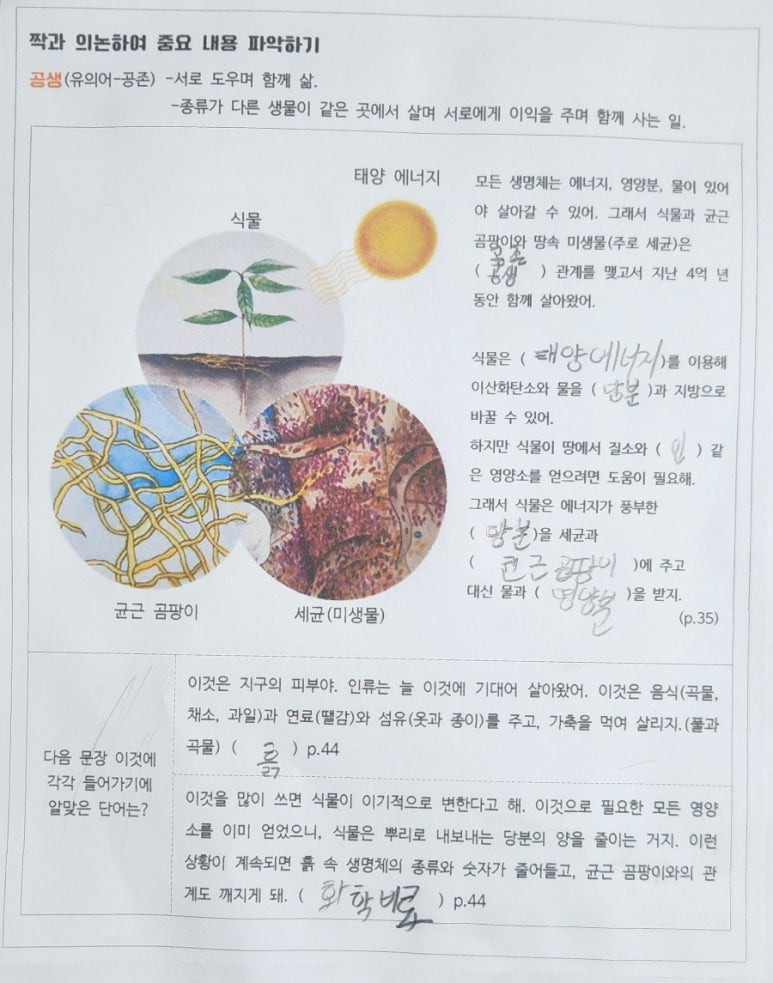 짝과 의논하여 중요 내용 파악하기
공생(유의어-공존) -서로 도우며 함께 삶.
-종류가 다른 생물이 같은 곳에서 살며 서로에게 이익을 주며 함께 사는 일.
태양 에너지
식물
균근 곰팡이
세균(미생물)
모든 생명체는 에너지, 영양분, 물이 있어
야 살아갈 수 있어. 그래서 식물과 균근
곰팡이와 땅속 미생물(주로 세균)은
공존
( 공생 ) 관계를 맺고서 지난 4억 년
동안 함께 살아왔어.
식물은 ( 태양에너지 )를 이용해
이산화탄소와 물을 ( 당분 )과 지방으로
바꿀 수 있어.
하지만 식물이 땅에서 질소와 ( 인 ) 같
은 영양소를 얻으려면 도움이 필요해.
그래서 식물은 에너지가 풍부한
( 당분 )을 세균과
( 균근 곰팡이 )에 주고
대신 물과 ( 영양분 )을 받지.
(p.35)
다음 문장 이것에
각각 들어가기에
알맞은 단어는?
이것은 지구의 피부야. 인류는 늘 이것에 기대어 살아왔어. 이것은 음식(곡물,
채소, 과일)과 연료(땔감)와 섬유(옷과 종이)를 주고, 가축을 먹여 살리지.(풀과
곡물) ( 흙 ) p.44
이것을 많이 쓰면 식물이 이기적으로 변한다고 해. 이것으로 필요한 모든 영양
소를 이미 얻었으니, 식물은 뿌리로 내보내는 당분의 양을 줄이는 거지. 이런
상황이 계속되면 흙 속 생명체의 종류와 숫자가 줄어들고, 균근 곰팡이와의 관
계도 깨지게 돼. ( 화학비료 ) p.44